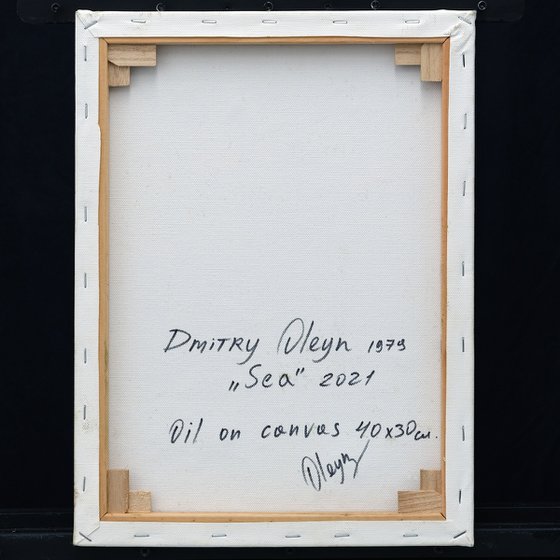 Dmitry Oleyn 1979
„Sea” 2021
Oil on canvas 40x30см.
Oleyn